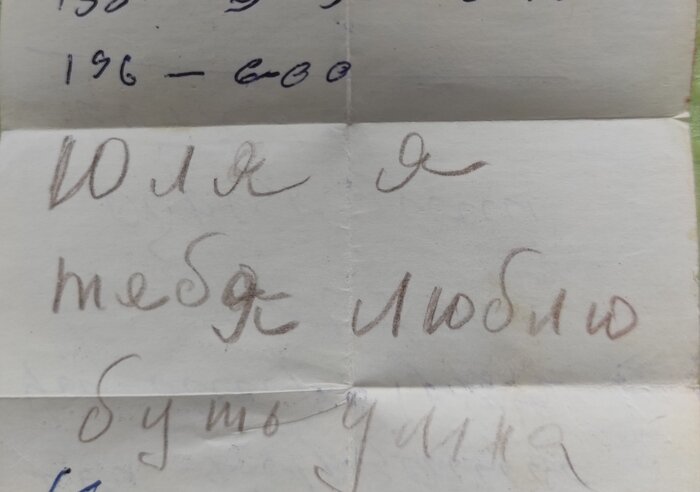 196 — 6-00
Юля я
тебя люблю
буть умна